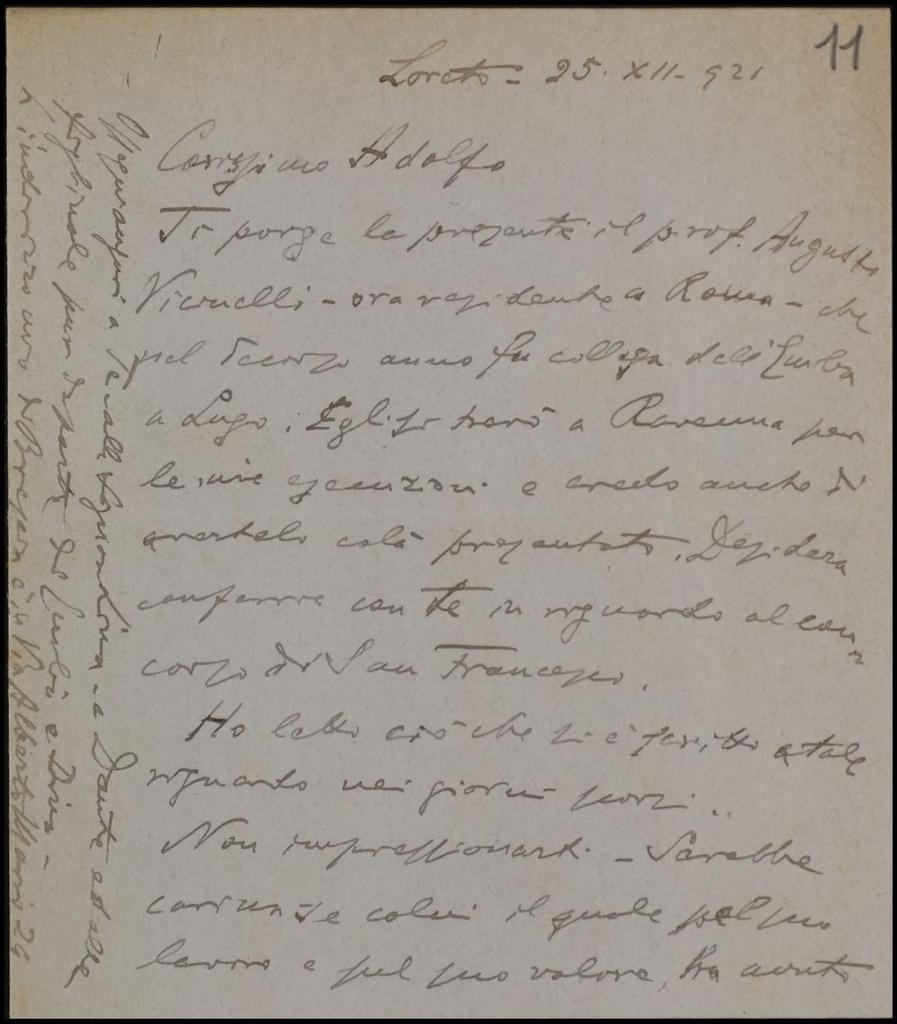 11
Loreto - 25. XII - 921
Carissimo Adolfo
Ti porge la presente il prof. Augusto
Vicinelli - ora residente a Roma - che
nel scorso anno fu collega dell'
a Lugo. Egli si trovò a Ravenna per
le mie esecuzioni e credo anche di
avertelo colà presentato. Desidera
conferire con te in riguardo al con=
corso di San Francesco.
Ho letto ciò che si è scritto a tale
riguardo nei giorni scorsi..
Non impressionarti - Sarebbe
carina se colui il quale pel suo
lavoro e pel suo valore, ha avuto
a Te alla Signorina - a Dante ed alle
pur da parte di e Dina -
L'indirizzo mio di è in Via Alberto Mario 26